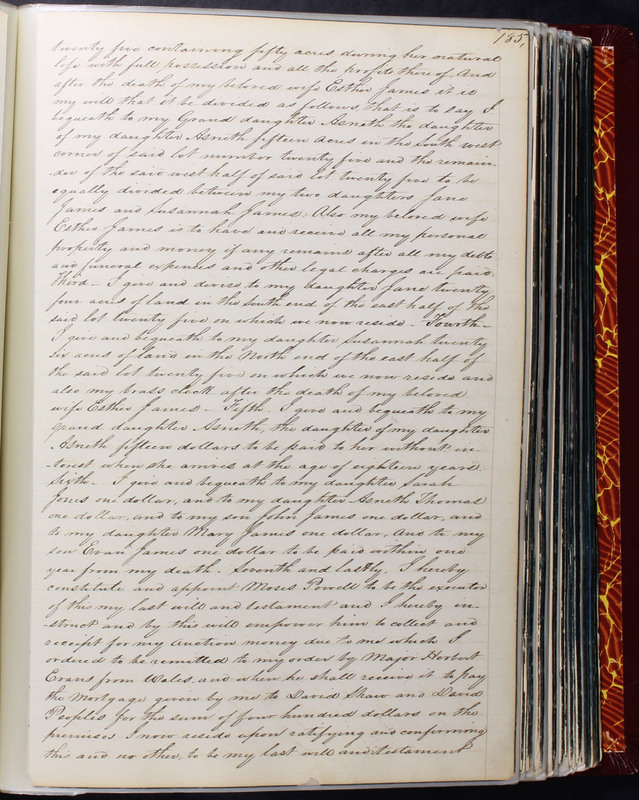 185,
twenty five containing fifty acres during her natural
life with full possession and all the profits there of. And
after the death of my beloved wife Esther James it is
my will that it be divided as follows that is to say I
bequeath to my Grand daughter Asneth the daughter
of my daughter Asneth fifteen acres in the South west
corner of said lot number twenty five and the remain-
der of the said west half of said lot twenty five to be
equally divided between my two daughters Jane
James and Susannah James, Also my beloved wife
Esther James is to have and receive all my personal
property and money if any remains after all my debts
and funeral expenses and other legal charges are paid.
Third - I give and devise to my daughter Jane twenty
four acres of land in the South end of the east half of the
said lot twenty five on which we now reside - Fourth -
I give and bequeath to my daughter Susannah twenty
six acres of land in the North end of the east half of
the said lot twenty five on which we now reside and
also my brass clock after the death of my beloved
wife Esther James - Fifth - I give and bequeath to my
grand daughter Asneth, the daughter of my daughter
Asneth fifteen dollars to be paid to her without in-
terest when she arrives at the age of eighteen years.
Sixth - I give and bequeath to my daughter Sarah
Jones one dollar, and to my daughter Asneth Thomas
one dollar, and to my son John James one dollar, and
to my daughter Mary James one dollar, And to my
son Evan James one dollar to be paid within one
year from my death. Seventh and lastly, I hereby
constitute and appoint Moses Powell to be the executor
of this my last will and testament and I hereby in-
struct and by this will empower him to collect and
receipt for my auction money due to me which I
ordered to be remitted to my order by Major Herbert
Evans from Wales, and when he shall receive it to pay
the Mortgage given by me to David Shaw and David
Peoples for the sum of four hundred dollars on the
premises I now reside upon ratifying and confirming
this and no other, to be my last will and testament